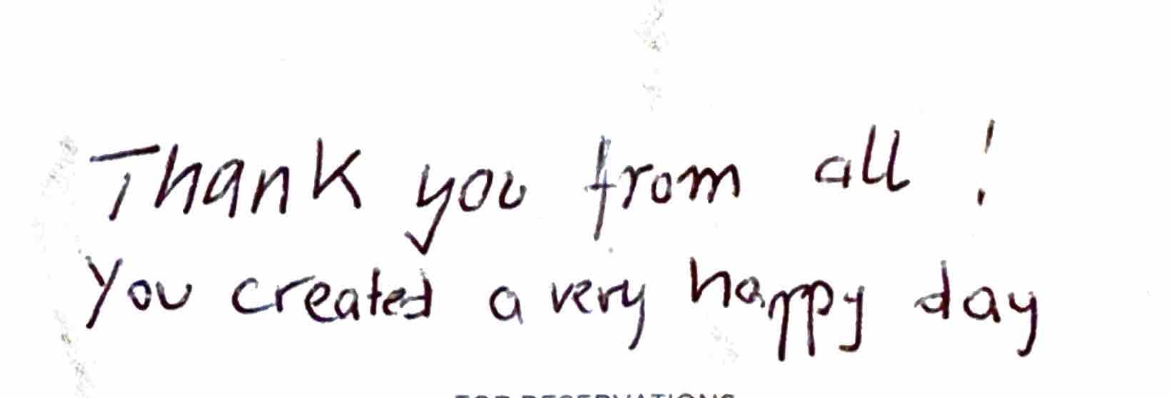 Thank you from all !
You created a very happy day
FOR RESERVATIONS